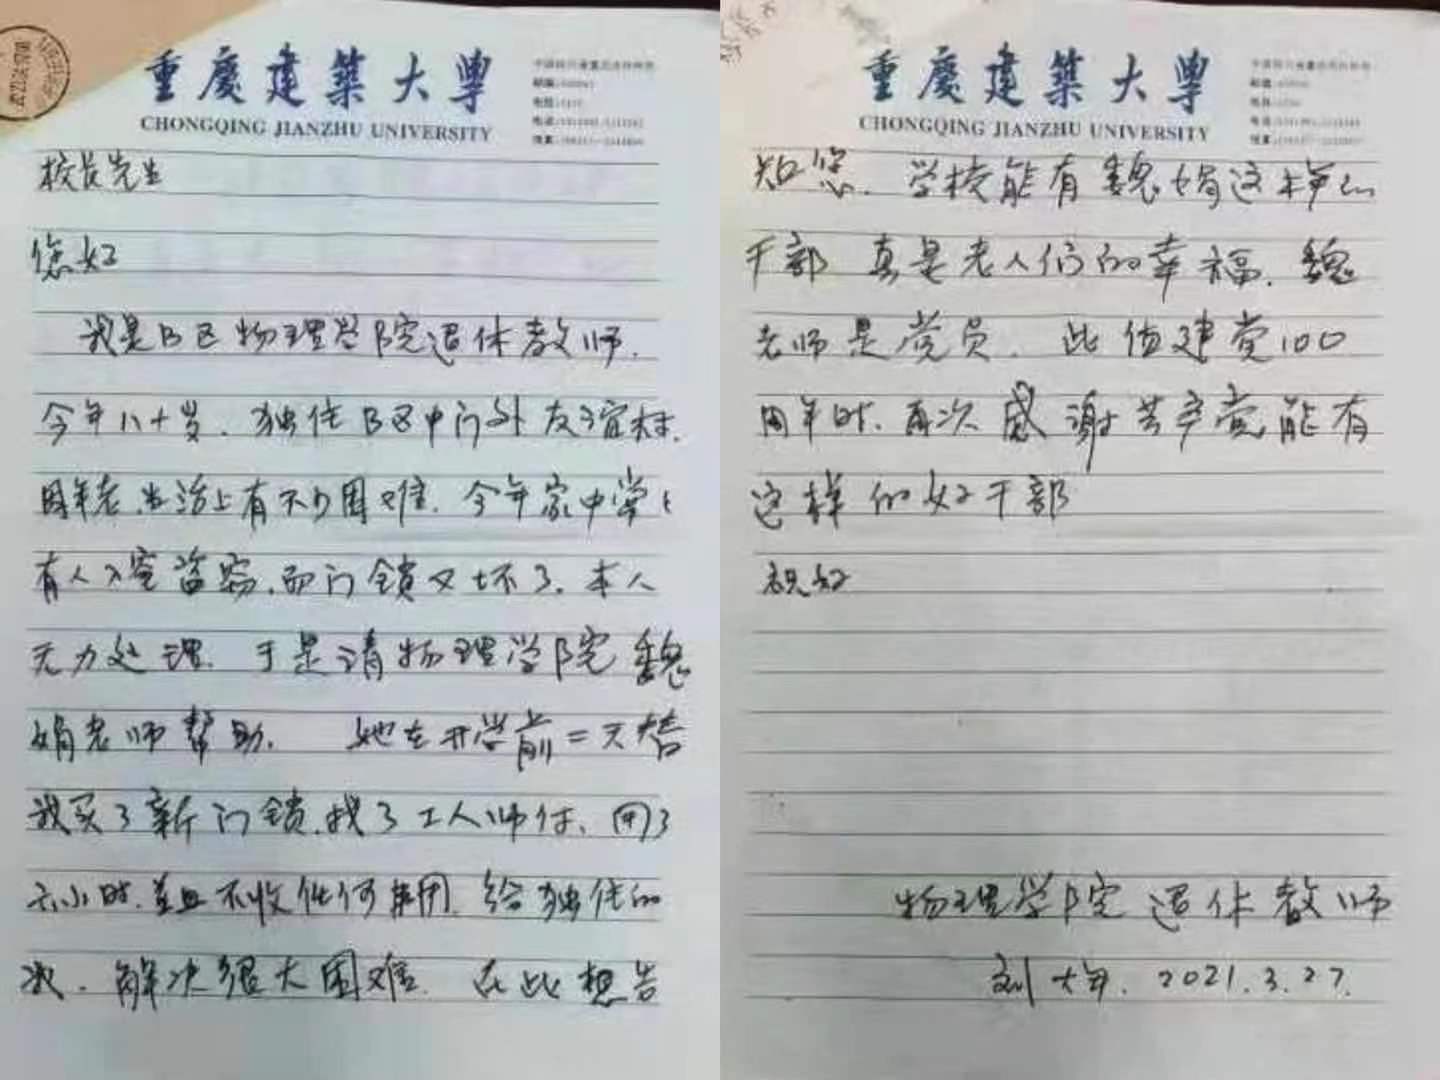 重慶建築大學
CHONGQING JIANZHU UNIVERSITY
校长先生
您好
我是B区物理学院退休教师.
今年八十岁. 独住B区中门外友谊村.
因年老.生活上有不少困难. 今年家中常
有人入室盗窃.而门锁又坏了. 本人
无力处理. 于是请物理学院魏
娟老师帮助. 她在开学前二天替
我买了新门锁.找了工人师付、用了
六小时.并且不收任何费用. 给独住的
我. 解决很大困难. 在此想告
重慶建築大學
CHONGQING JIANZHU UNIVERSITY
知您. 学校能有魏娟这样的
干部 真是老人们的幸福. 魏
老师是党员. 此值建党100
周年时.再次感谢共产党能有
这样的好干部
祝好
物理学院退休教师
刘大年. 2021.3.27.